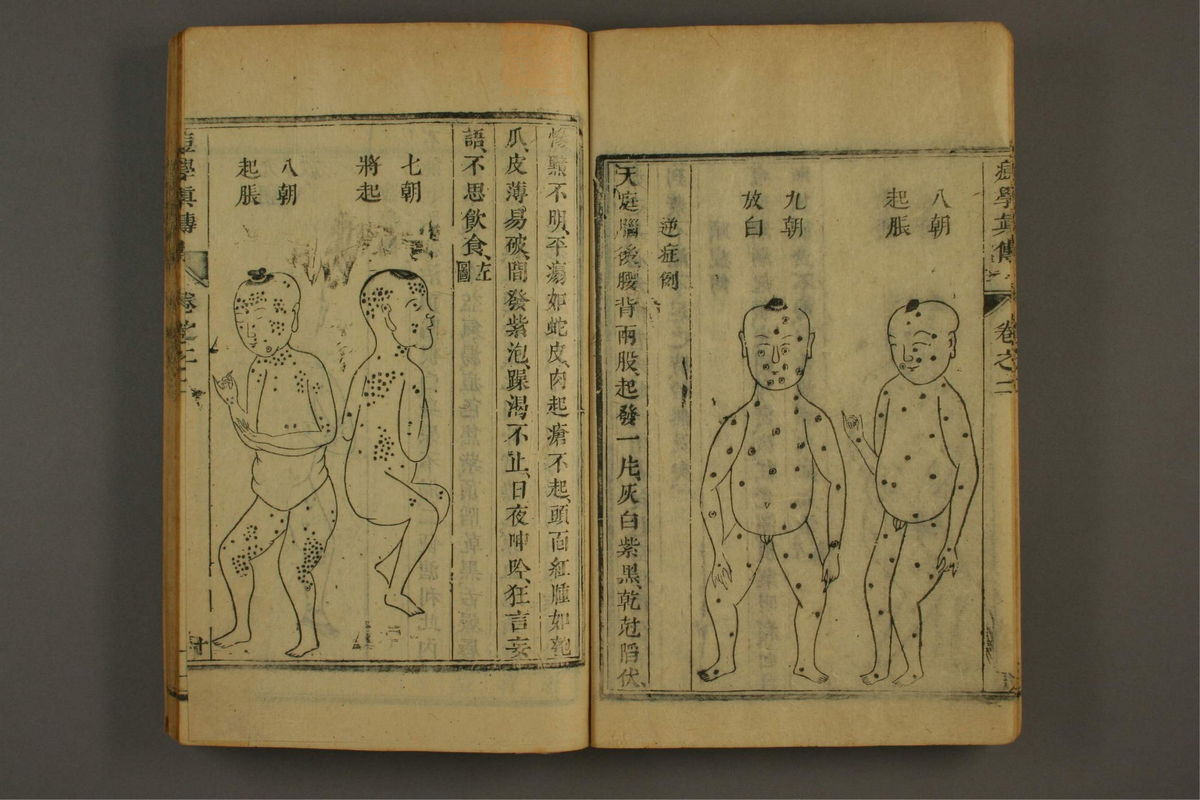 痘學真傳 卷之二
八朝
起脹
九朝
放白
逆症例
天庭腦後腰背兩股起發一片、灰白紫黑、乾尅陷伏、
不明、平蕩如蛇皮、肉起瘡不起、頭面紅腫如
皮薄易破、間發紫泡、躁渴不止、日夜呻吟、狂言妄
語、不思飲食、左圖
七朝
將起
八朝
起脹
痘學眞傳 卷之二